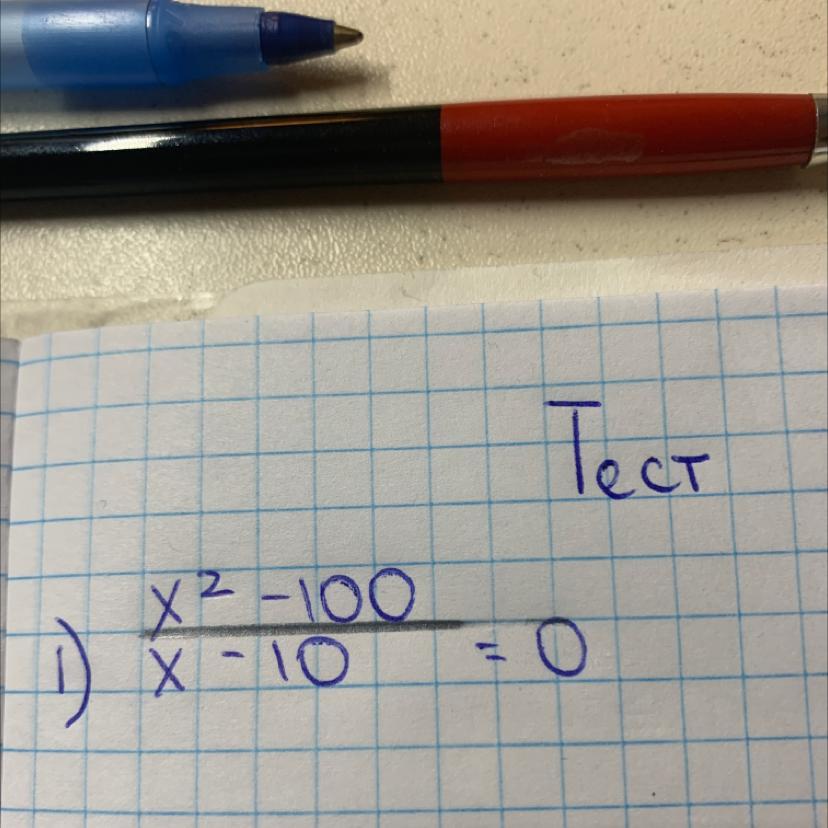 Тест
1) x² - 100
x - 10 = 0